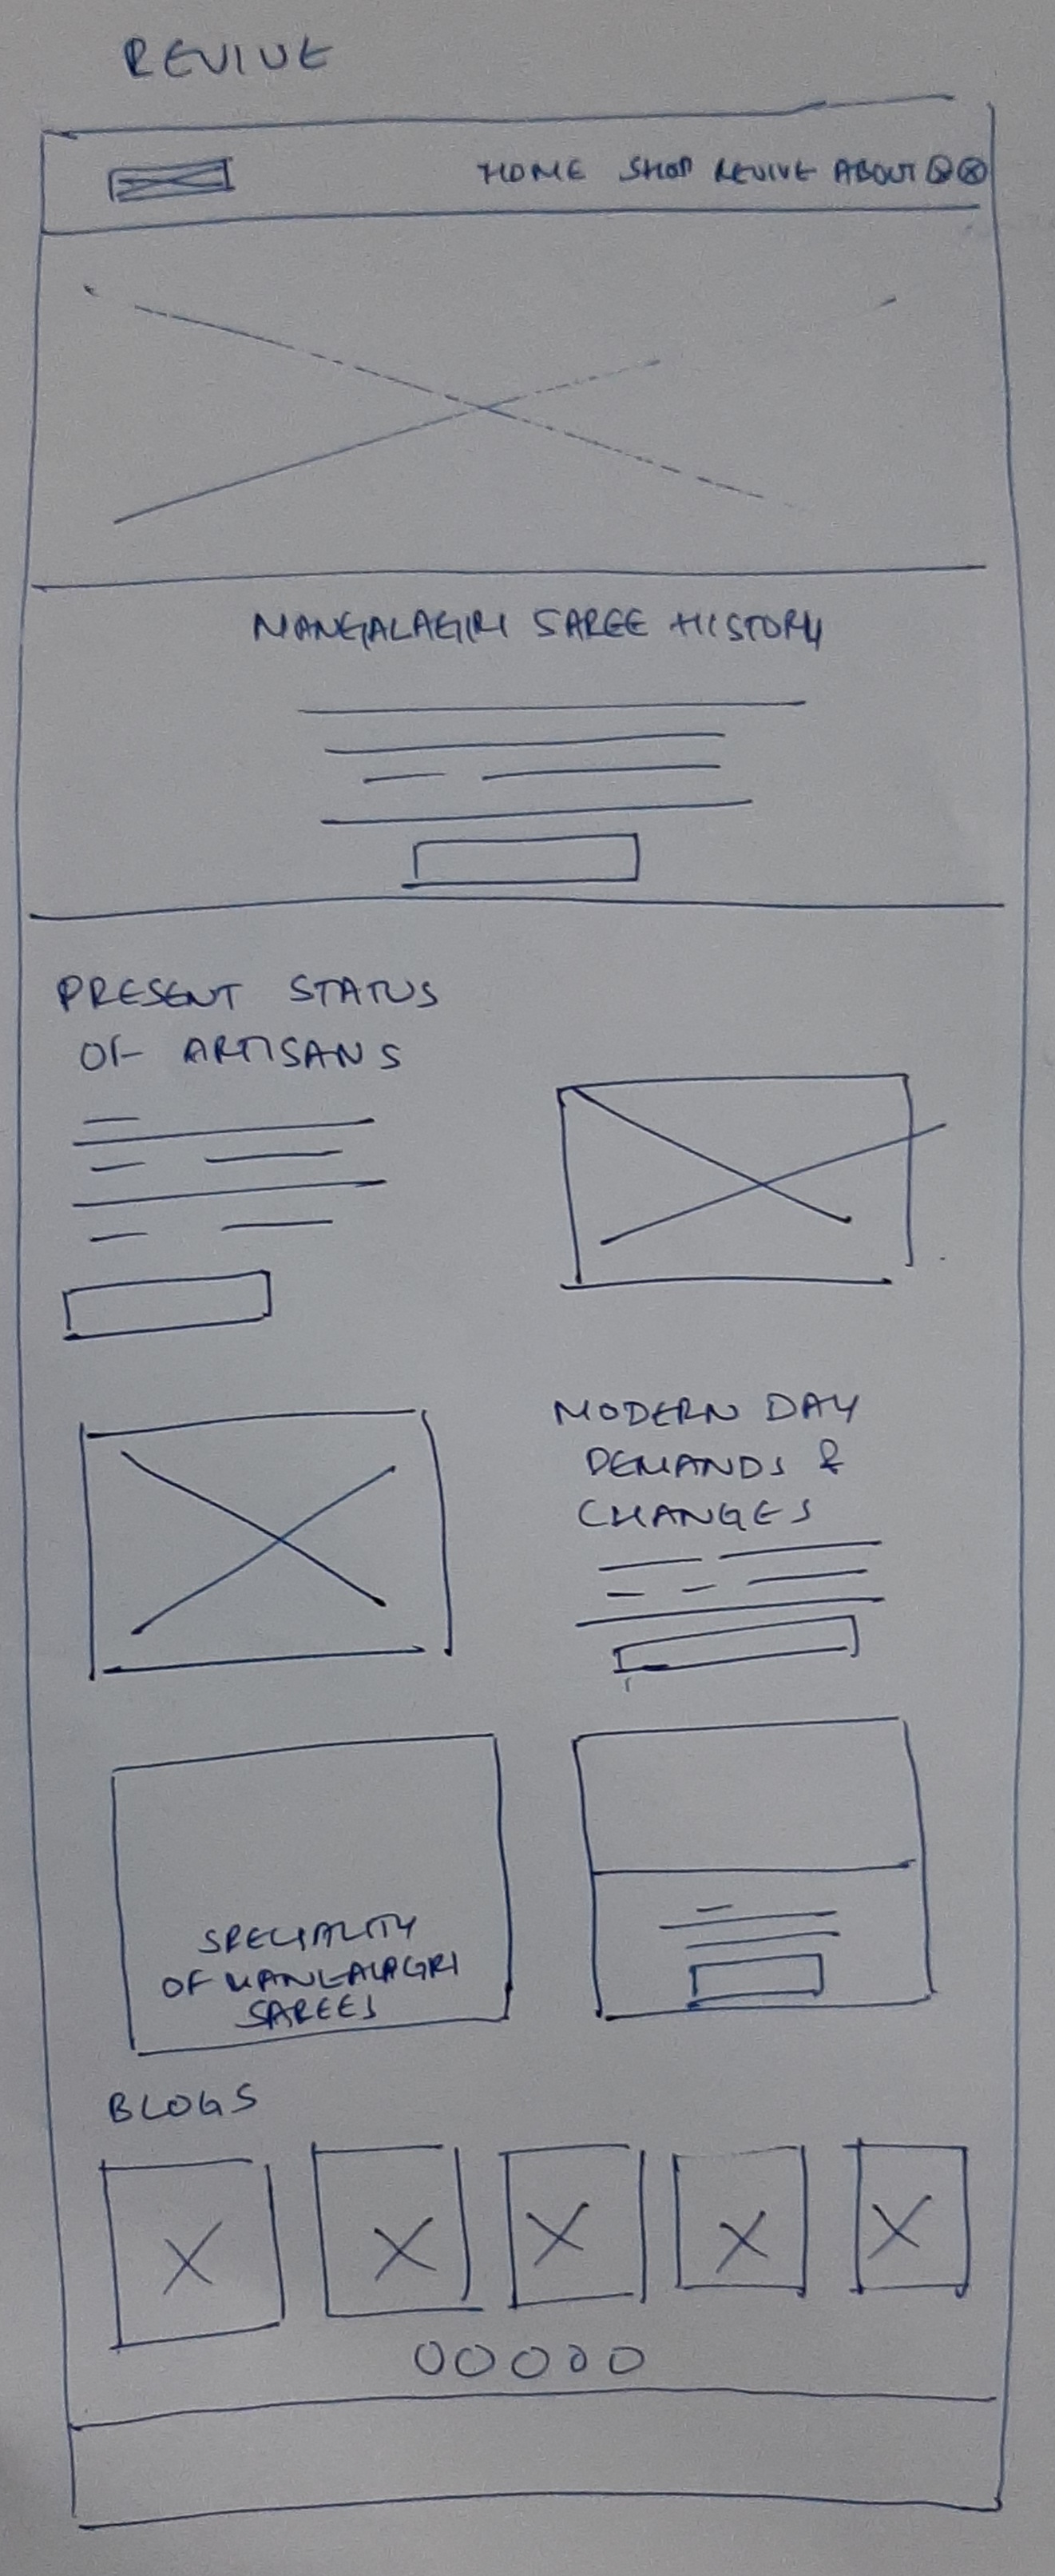 REVIVE
HOME SHOP REVIVE ABOUT
MANGALAGIRI SAREE HISTORY
PRESENT STATUS
OF ARTISANS
MODERN DAY
DEMANDS &
CHANGES
SPECIALITY
OF MANGALAGRI
SAREES
BLOGS